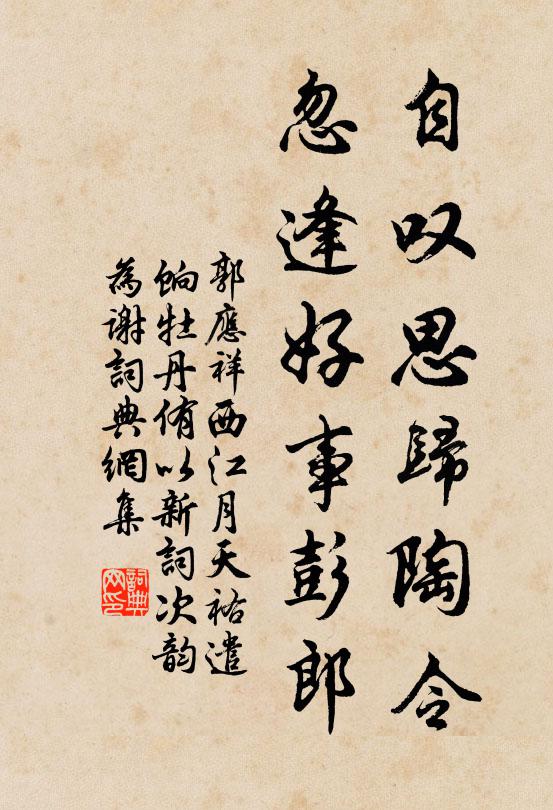 自叹思歸陶令
忽逢好事彭郎
郭應祥西江月天祐遣
餉牡丹侑以新詞次韵
為谢詞典網集
詞典网印